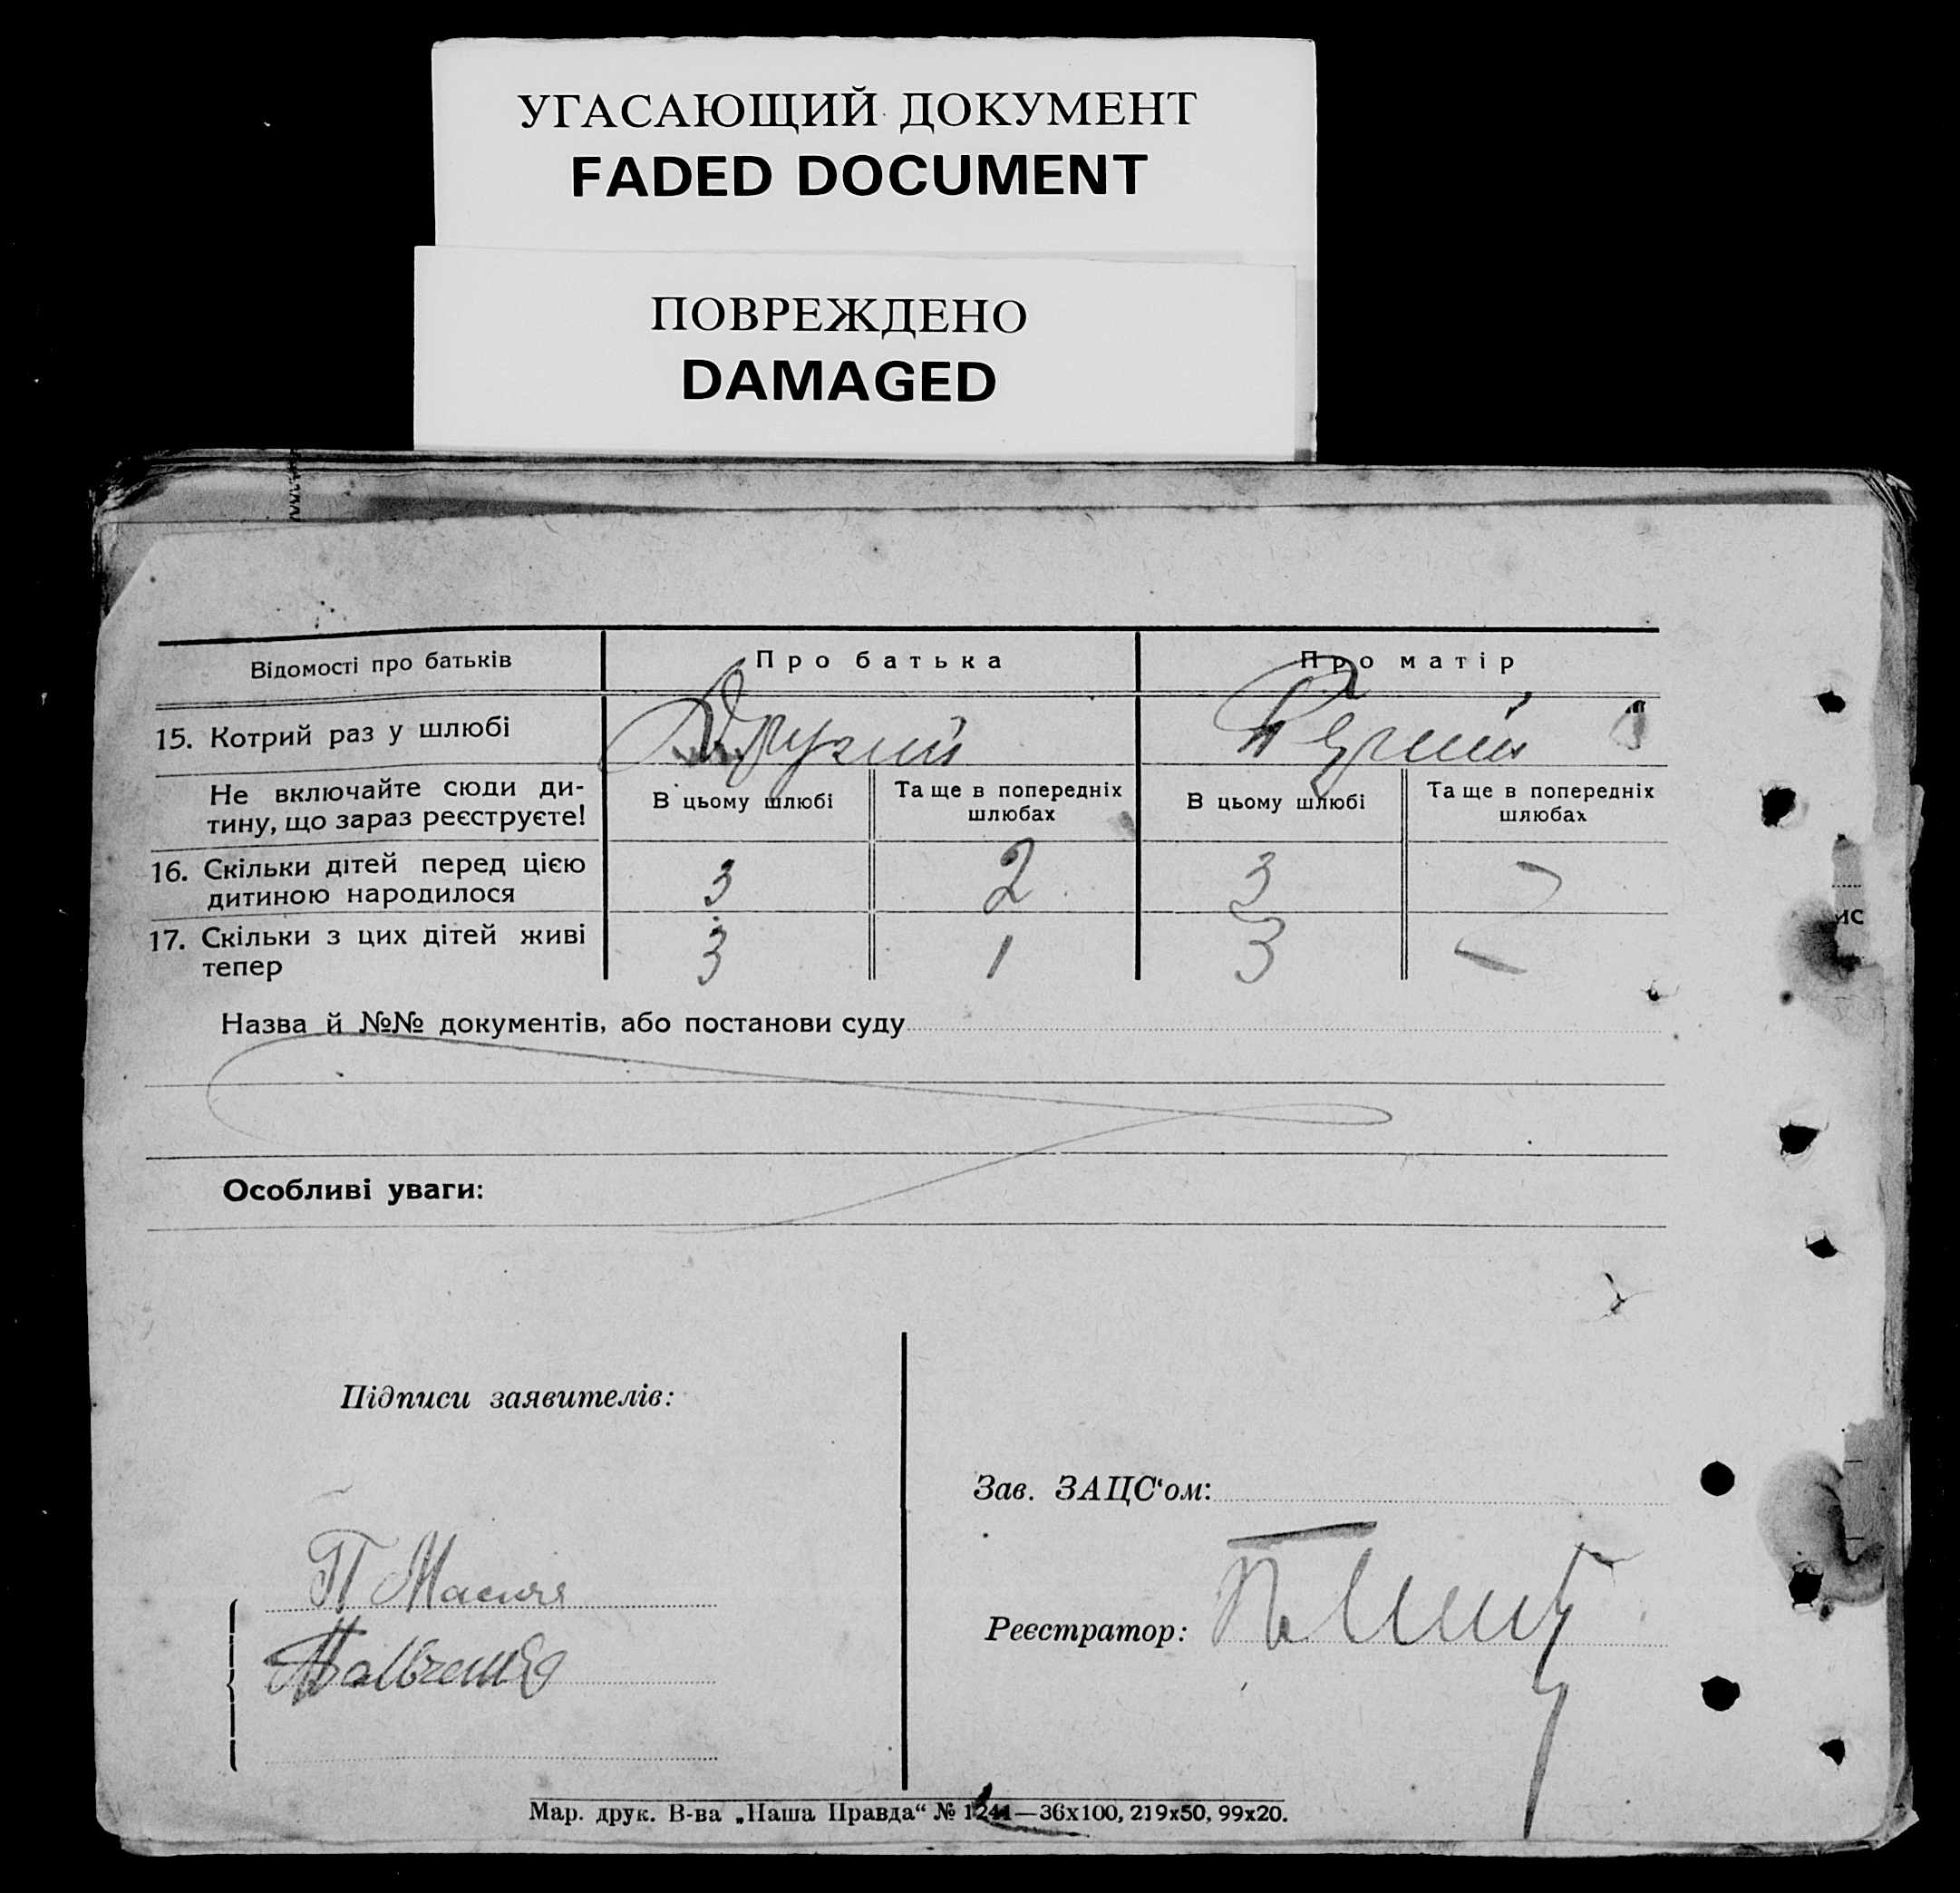 УГАСАЮЩИЙ ДОКУМЕНТ
FADED DOCUMENT
ПОВРЕЖДЕНО
DAMAGED
Відомості про батьків
Про батька
Про матір
15. Котрий раз у шлюбі
Другий
Перший
Не включайте сюди ди-
тину, що зараз реєструєте!
В цьому шлюбі
Та ще в попередніх
шлюбах
В цьому шлюбі
Та ще в попередніх
шлюбах
16. Скільки дітей перед цією
дитиною народилося
3
2
3
-
17. Скільки з цих дітей живі
тепер
3
1
3
-
Назва й №№ документів, або постанови суду
Особливі уваги:
Підписи заявителів:
Зав. ЗАЦС‘ом:
П
Реєстратор:
Мар. друк. В-ва „Наша Правда“ № 1241—36х100, 219х50, 99х20.
ис